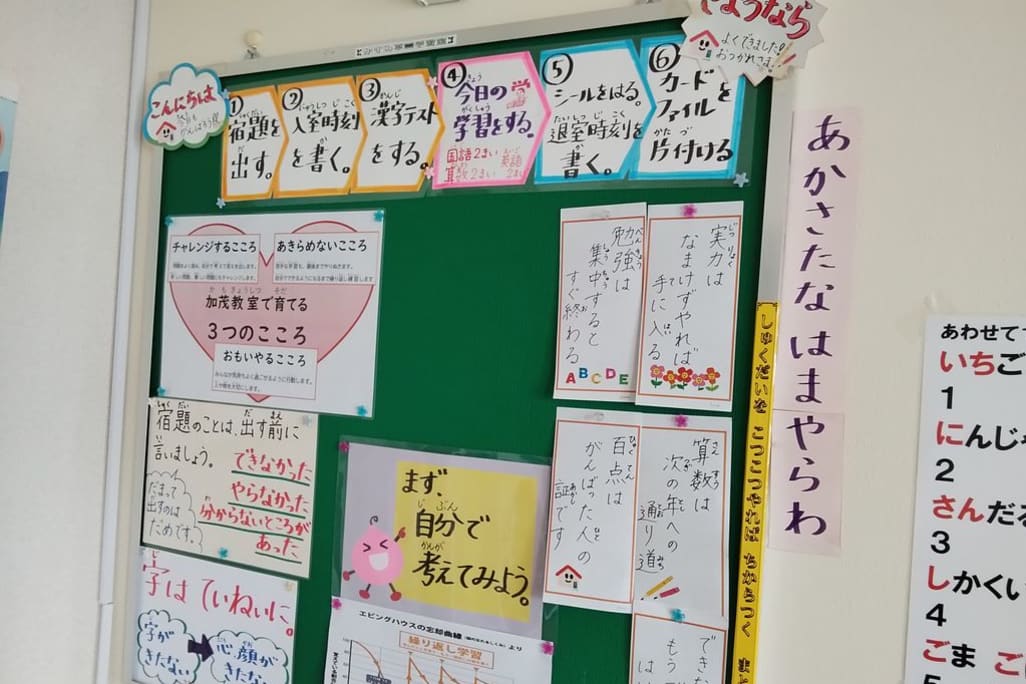 こんにちは
今日も
がんばろう
①宿題を
出す。
②入室時刻
を書く。
③漢字テスト
をする。
④今日の
学習をする。
国語2まい 英語
算数2まい 2まい
⑤シールをはる。
退室時刻を
書く。
⑥カード
ファイルを
片付ける
さようなら
よくできました!
おつかれさま
チャレンジするこころ
あきらめないこころ
加茂教室で育てる
3つのこころ
おもいやるこころ
みんなが気持ちよく過ごせるように行動します。
人や物を大切にします。
実力は
なまけずやれば
手に入る
勉強は
集中すると
すぐ終わる
ABCDE
算数は
次の年への
通り道
百点は
がんばった人の
証です
でき
もう
は
宿題のことは、出す前に
言いましょう。
できなかった
やらなかった
分からないところが
あった
だまって
出すのは
だめです。
まず、
自分で
考えてみよう。
字はていねいに。
字が
きたない
心、顔が
きたな
エビングハウスの忘却曲線 より
繰り返し学習
しゅくだいを こつこつやれば ちからつく
あかさたなはまやらわ
あわせて
いちご
1
にんじ
2
さんだ
3
しかくい
4
ごま ご
5